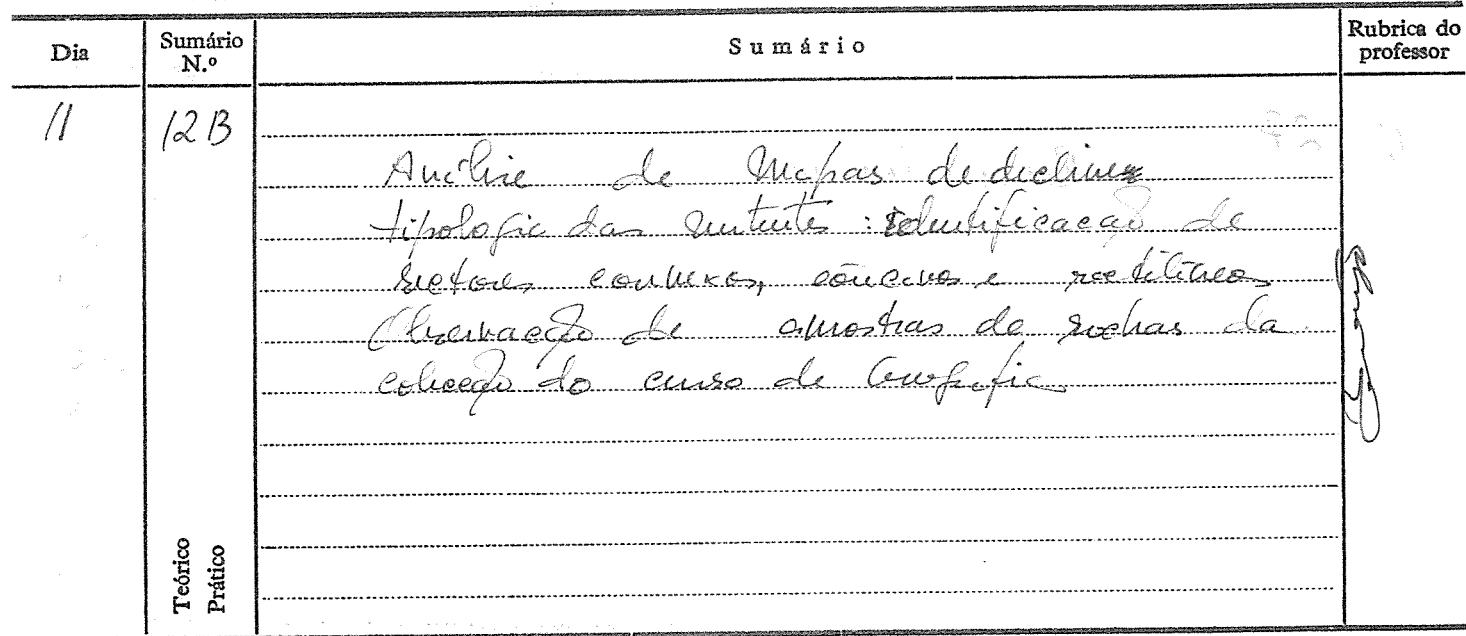 Dia
Sumário N.º
Sumário
Rubrica do professor
11
12 B
Análise de Mapas de declives
tipologia das vertentes : identificação de
sectores convexos, côncavos e rectilíneos
Observação de amostras de rochas da
colecção do curso de Geografia
Teórico
Prático